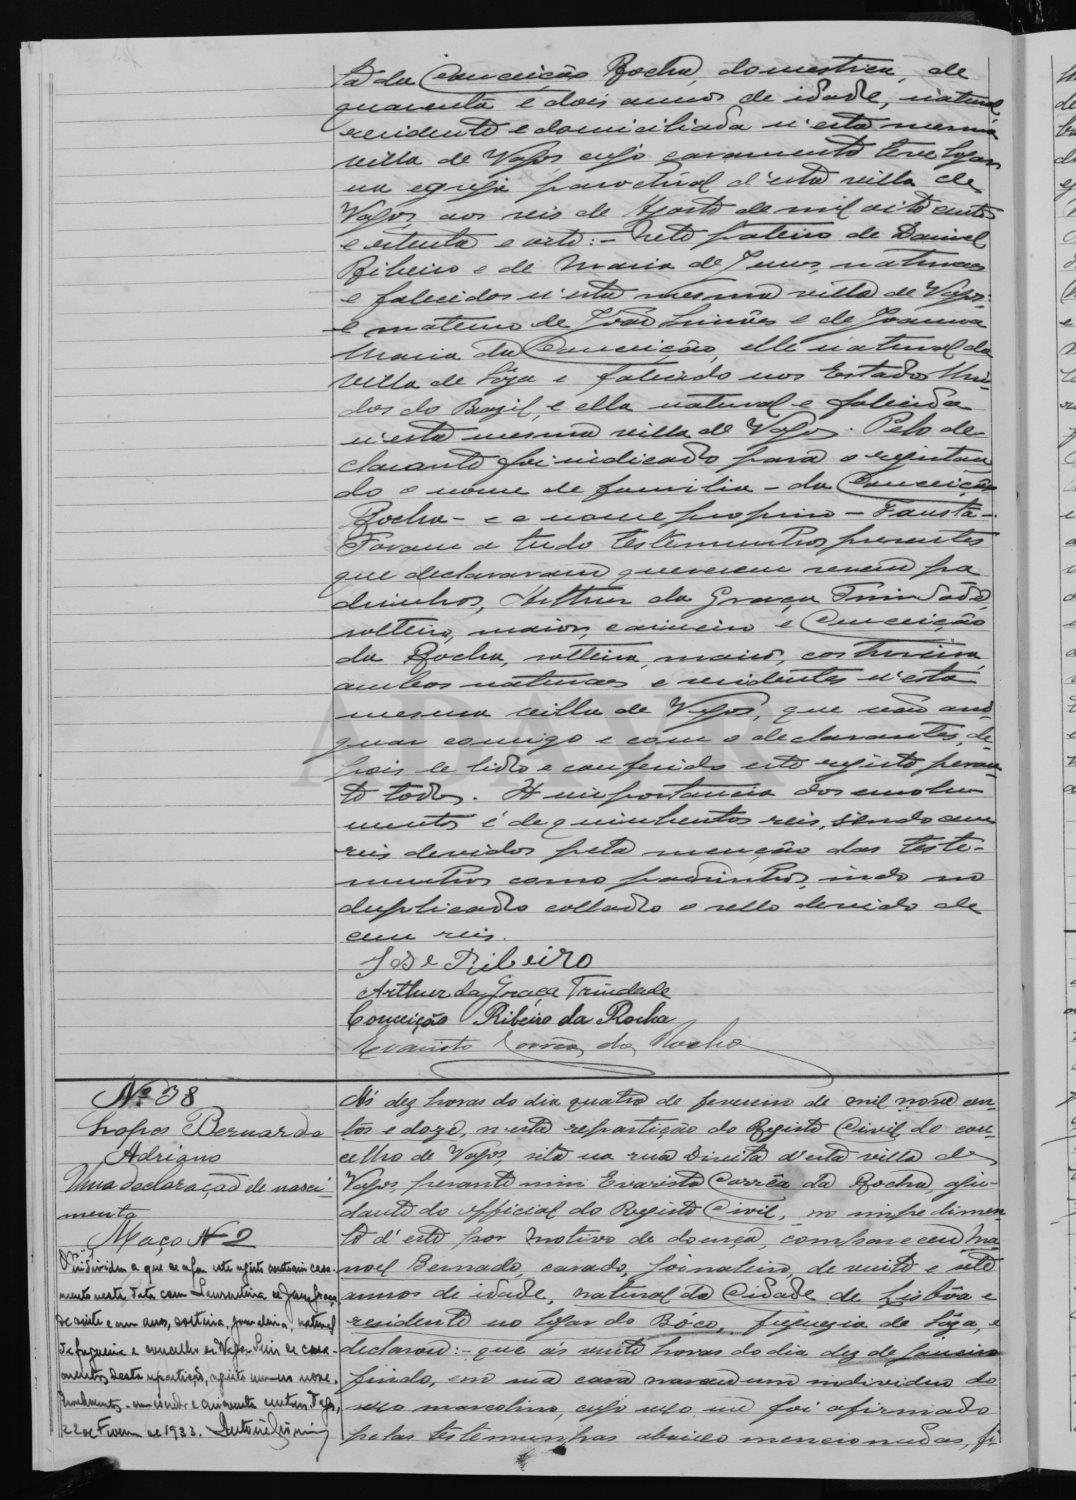 ta da Conceição Rocha, domestica, de
quarenta e dois annos de idade, natural,
residente e domiciliada n'esta mesma
villa de Vagos cujo casamento teve logar
na egreja parochial d'esta villa de
Vagos, aos seis de Agosto de mil oito centos
e oitenta e oito:- Neto paterno de Daniel
Ribeiro e de Maria de Jesus, naturaes
e falecidos n'esta mesma villa de Vagos:
e materno de João Simões e de Joanna
Maria da Conceição, elle natural da
villa de Sôza e falecido nos Estados Uni-
dos do Brazil, e ella natural e falecida
n'esta mesma villa de Vagos. Pelo de-
clarante foi indicado para o registan-
do o nome de familia - da Conceição
Rocha - e o nome proprio - Fausta -.
Foram a tudo testemunhas presentes
que declararam quererem serem pa
drinhos, Arthur da Graça Trindade,
solteiro, maior, caixeiro e Conceição
da Rocha, solteira, maior, costureira,
ambos naturaes e residentes n'esta
mesma villa de Vagos, que vão assi-
gnar comigo e com o declarantes, de-
pois de lido e conferido este registo peran-
te todos. A importancia dos emolu
mentos é de quinhentos reis, sendo cem
reis devidos pela menção das teste-
munhas como padrinhos, indo no
duplicado collado o sello devido de
cem reis.
José Ribeiro
Arthur da Graça Trindade
Conceição Ribeiro da Rocha
Evaristo Corrêa da Rocha
Nº 38
Lopes Bernardo
Adriano
Uma declaração de nasci-
mento
Maço Nº 2
O individuo a que se refere este registo contraiu casa-
mento nesta data com Laurentina de Jesus Graça,
de vinte e um anos, solteira, jornaleira, natural
da freguesia e concelho de Vagos. Livro de casa-
mentos desta repartição, registo numero nove.
Emolumentos - um escudo e cincoenta centavos. Vagos,
22 de Fevereiro de 1933.
Ás dez horas do dia quatro de fevereiro de mil nove cen-
tos e doze, n'esta repartição do Registo Civil do con-
celho de Vagos, sita na rua Direita d'esta villa de
Vagos, perante mim Evaristo Corrêa da Rocha, aju-
dante do official do Registo Civil, no impedimen-
to d'este por motivo de doença, compareceu Ma-
noel Bernardo, casado, jornaleiro, de vinte e sete
annos de idade, natural da Cidade de Lisbôa e
residente no logar do Bóco, freguezia de Sôza, e
declarou:- que ás vinte horas do dia dez de janeiro
findo, em sua casa nasceu um individuo do
sexo masculino, cujo sexo me foi afirmado
pelas testemunhas abaixo mencionadas, fi
ADAVR